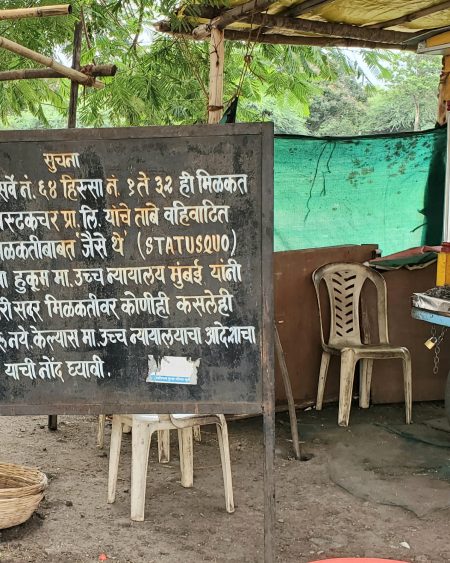 सुचना
सर्वे नं. ६४ हिस्सा नं. १ ते ३२ ही मिळकत
स्टकचर प्रा. लि. यांचे ताबे वहिवाटित
ळकतीबाबत जैसे थे (STATUSQUO)
हुकूम मा. उच्च न्यायालय मुंबई यांनी
सदर मिळकतीवर कोणीही कसलेही
नये. केल्यास मा. उच्च न्यायालयाचा आदेशाचा
याची नोंद घ्यावी.